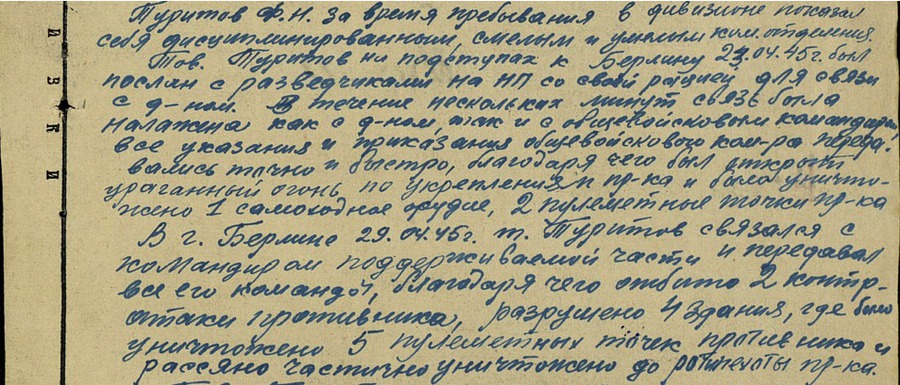 Туритов Ф.Н. за время пребывания в дивизионе показал
себя дисциплинированным, смелым и умелым ком. отделения.
Тов. Туритов на подступах к Берлину 23.04.45г. был
послан с разведчиками на НП со своей рацией для связи
с д-ном. В течение нескольких минут связь была
налажена как с д-ном, так и с общевойсковым командиром
все указания и приказания общевойскового ком-ра переда-
вались точно и быстро, благодаря чего был открыт
ураганный огонь по укреплениям пр-ка и было уничто-
жено 1 самоходное орудие, 2 пулеметные точки пр-ка
В г. Берлине 29.04.45г. т. Туритов связался с
командиром поддерживаемой части и передавал
все его команды, благодаря чего отбито 2 контр-
атаки противника, разрушено 4 здания, где было
уничтожено 5 пулеметных точек противника и
рассеяно частично уничтожено до роты пехоты пр-ка.